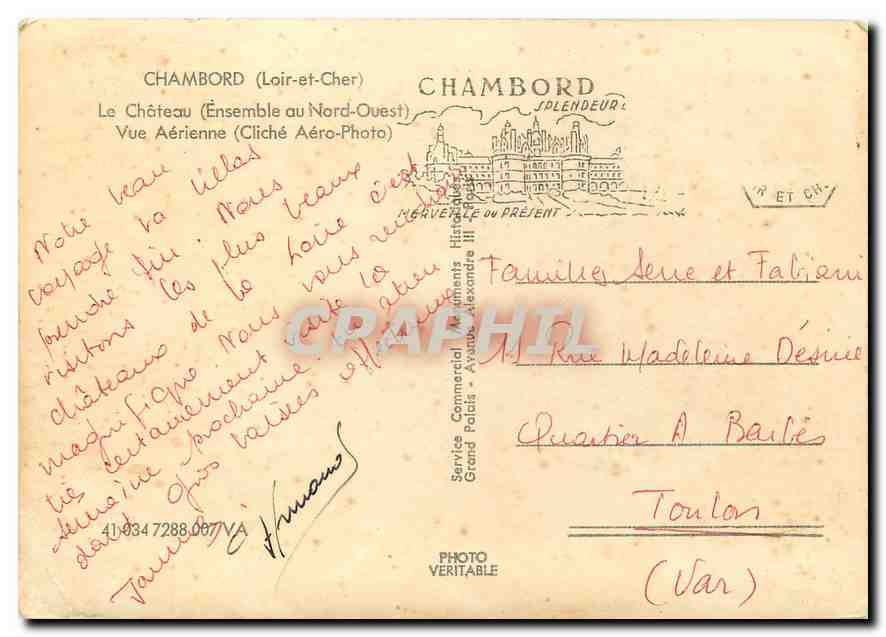 CHAMBORD (Loir-et-Cher)
Le Château (Ensemble au Nord-Ouest)
Vue Aérienne (Cliché Aéro-Photo)
CHAMBORD
SPLENDEUR
MERVEILLE DU PRÉSENT
R ET CH
Notre beau
voyage va hélas
prendre fin. Nous
visitons les plus beaux
châteaux de la Loire c'est
magnifique Nous vous rendrons
très certainement visite la
semaine prochaine
dans Gros baisers affectueux
41 034 7288 007/VA
Service Commercial Monuments Historiques
Grand Palais - Avenue Alexandre III Paris
Familles Serre et Fabiani
11 Rue Madeleine Désirée
Quartier A Barbès
Toulon
(Var)
PHOTO
VERITABLE
CRAPHIL